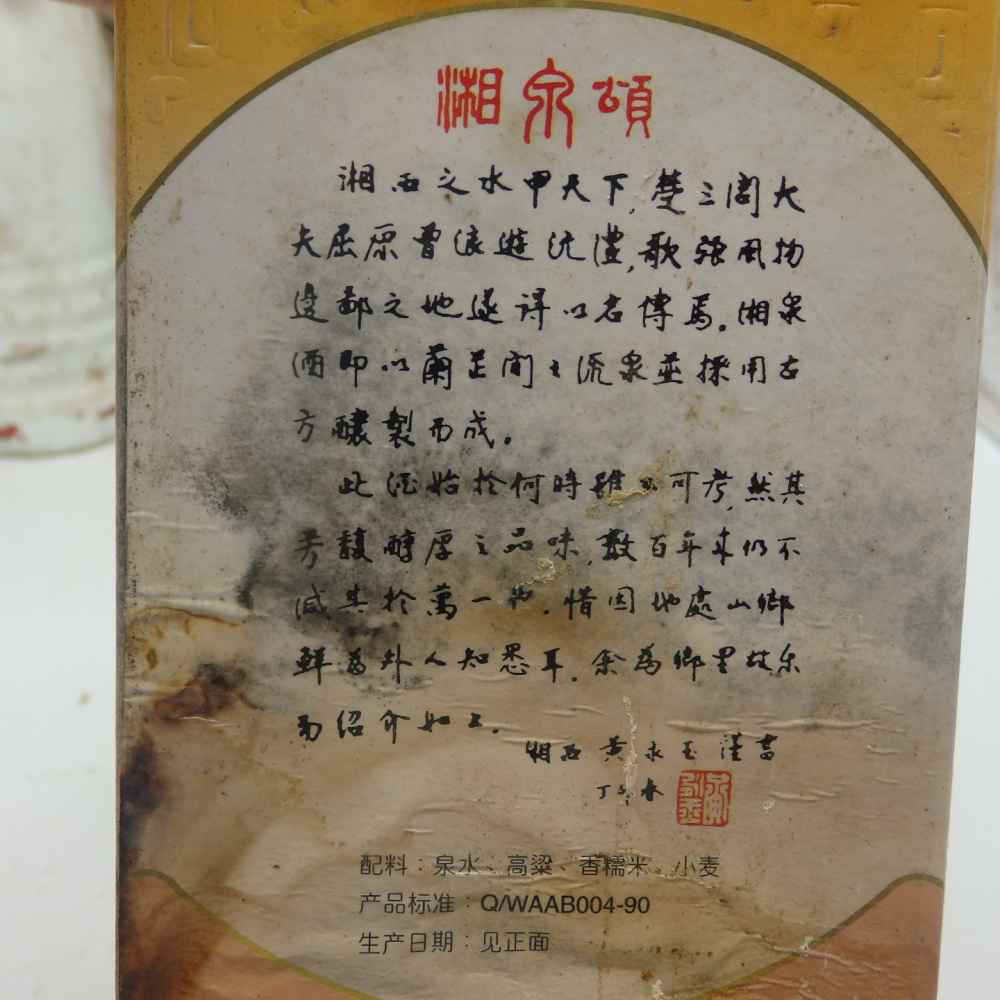 湘泉頌
湘西之水甲天下,楚三閭大
夫屈原曾浪遊沅澧,歌張風物
邊鄙之地遂得以名傳焉。湘泉
酒即以蘭芷間之流泉並採用古
方釀製而成。
此酒始於何時雖不可考,然其
芳馥醇厚之品味,數百年来仍不
減其於萬一也.惜因地處山鄉
鮮為外人知悉耳.余為鄉里故乐
为紹介如上.
湘西 黄永玉 謹書
丁卯春
配料:泉水、高粱、香糯米、小麦
产品标准:Q/WAAB004-90
生产日期:见正面